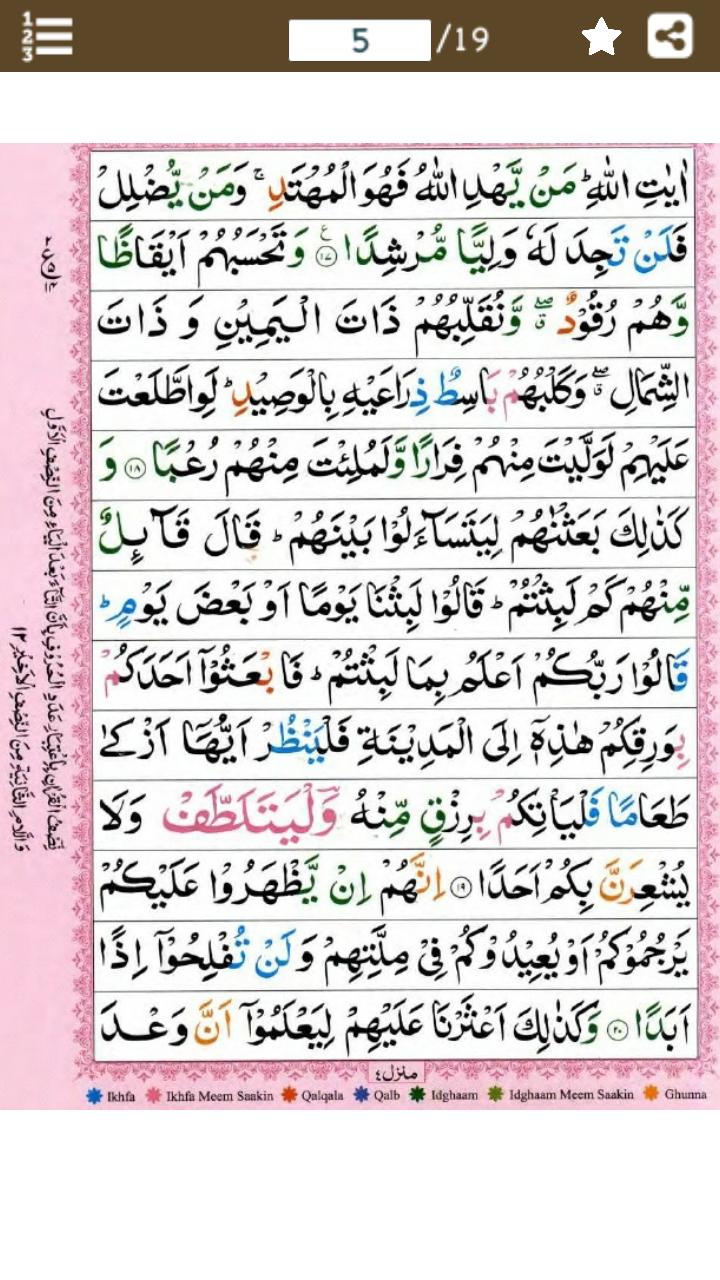 1
2
3
5
/19
اٰيٰتِ اللّٰهِ ؕ مَنْ يَّهْدِ اللّٰهُ فَهُوَ الْمُهْتَدِ ۚ وَمَنْ يُّضْلِلْ
فَلَنْ تَجِدَ لَهٗ وَلِيًّا مُّرْشِدًا ۧ ۱۷ وَتَحْسَبُهُمْ اَيْقَاظًا
وَّهُمْ رُقُوْدٌ ۖۗ وَّنُقَلِّبُهُمْ ذَاتَ الْيَمِيْنِ وَ ذَاتَ
الشِّمَالِ ۖۗ وَكَلْبُهُمْ بَاسِطٌ ذِرَاعَيْهِ بِالْوَصِيْدِ ؕ لَوِ اطَّلَعْتَ
عَلَيْهِمْ لَوَلَّيْتَ مِنْهُمْ فِرَارًا وَّلَمُلِئْتَ مِنْهُمْ رُعْبًا ۱۸ وَ
كَذٰلِكَ بَعَثْنٰهُمْ لِيَتَسَآءَلُوْا بَيْنَهُمْ ؕ قَالَ قَآئِلٌ
مِّنْهُمْ كَمْ لَبِثْتُمْ ؕ قَالُوْا لَبِثْنَا يَوْمًا اَوْ بَعْضَ يَوْمٍ ؕ
قَالُوْا رَبُّكُمْ اَعْلَمُ بِمَا لَبِثْتُمْ ؕ فَابْعَثُوْۤا اَحَدَكُمْ
بِوَرِقِكُمْ هٰذِهٖۤ اِلَى الْمَدِيْنَةِ فَلْيَنْظُرْ اَيُّهَاۤ اَزْكٰى
طَعَامًا فَلْيَاْتِكُمْ بِرِزْقٍ مِّنْهُ وَلْيَتَلَطَّفْ وَلَا
يُشْعِرَنَّ بِكُمْ اَحَدًا ۱۹ اِنَّهُمْ اِنْ يَّظْهَرُوْا عَلَيْكُمْ
يَرْجُمُوْكُمْ اَوْ يُعِيْدُوْكُمْ فِيْ مِلَّتِهِمْ وَلَنْ تُفْلِحُوْۤا اِذًا
اَبَدًا ۲۰ وَكَذٰلِكَ اَعْثَرْنَا عَلَيْهِمْ لِيَعْلَمُوْۤا اَنَّ وَعْدَ
نِصْفُ الْقُرْاٰنِ بِاعْتِبَارِ عَدَدِ الْحُرُوْفِ بِاَنَّ التَّآءَ بَعْدَ الْيَاءِ مِنَ النِّصْفِ الْاَوَّلِ
وَاللَّامَ الثَّانِيَةَ مِنَ النِّصْفِ الْاَخِيْرِ ۱۲
منزل ٤
Ikhfa
Ikhfa Meem Saakin
Qalqala
Qalb
Idghaam
Idghaam Meem Saakin
Ghunna